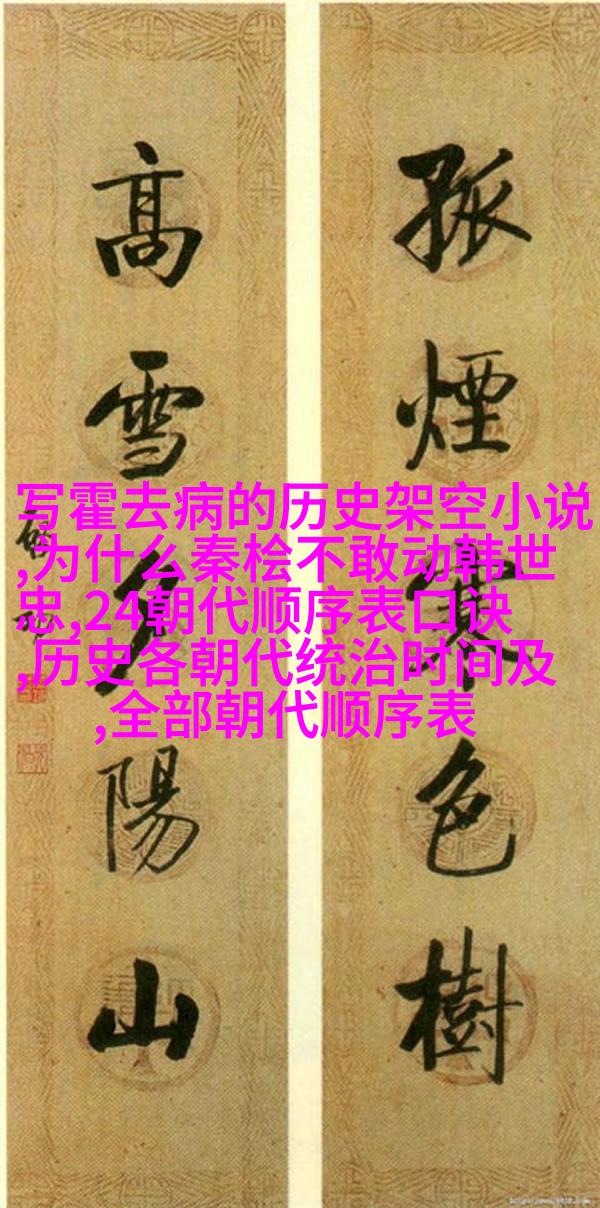 孤煙寒色樹
高雪夕陽山
写霍去病的历史架空小说
,为什么秦桧不敢动韩世
忠,24朝代顺序表口诀
,历史各朝代统治时间及
,全部朝代顺序表